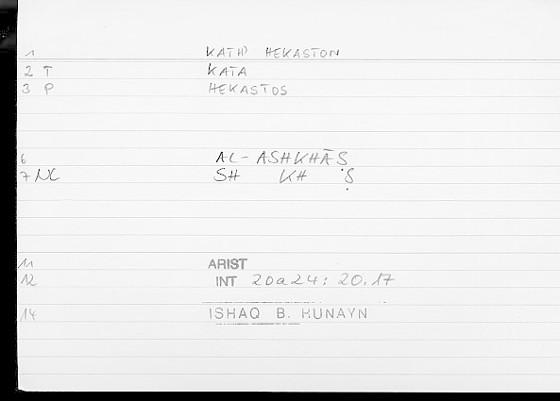 1 KATH' HEKASTON
2 T KATA
3 P HEKASTOS
6 AL-ASHKHĀṢ
7 NC SH KH Ṣ
11 ARIST
12 INT 20a24: 20.17
14 ISHAQ B. HUNAYN